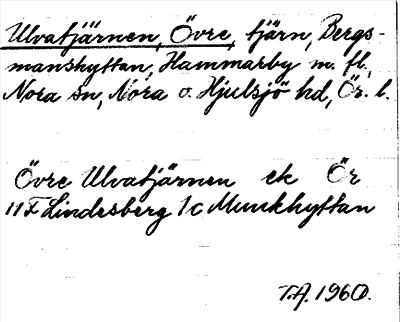 Ulvatjärnen, Övre, tjärn, Bergs-
manshyttan, Hammarby m. fl.,
Nora sn, Nora o. Hjulsjö hd, Ör. l.
Övre Ulvatjärnen ek Ör
11F Lindesberg 1c Munkhyttan
T.A. 1960.